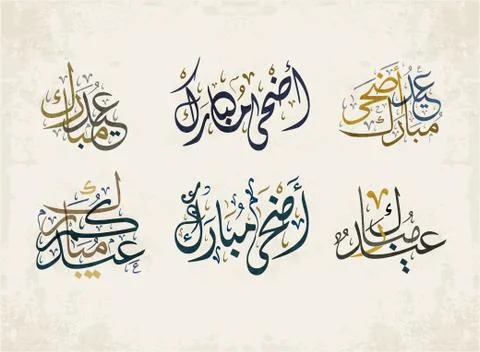 عيد أضحى مبارك
أضحى مبارك
عيد مبارك
عيد مبارك
أضحى مبارك
عيدكم مبارك